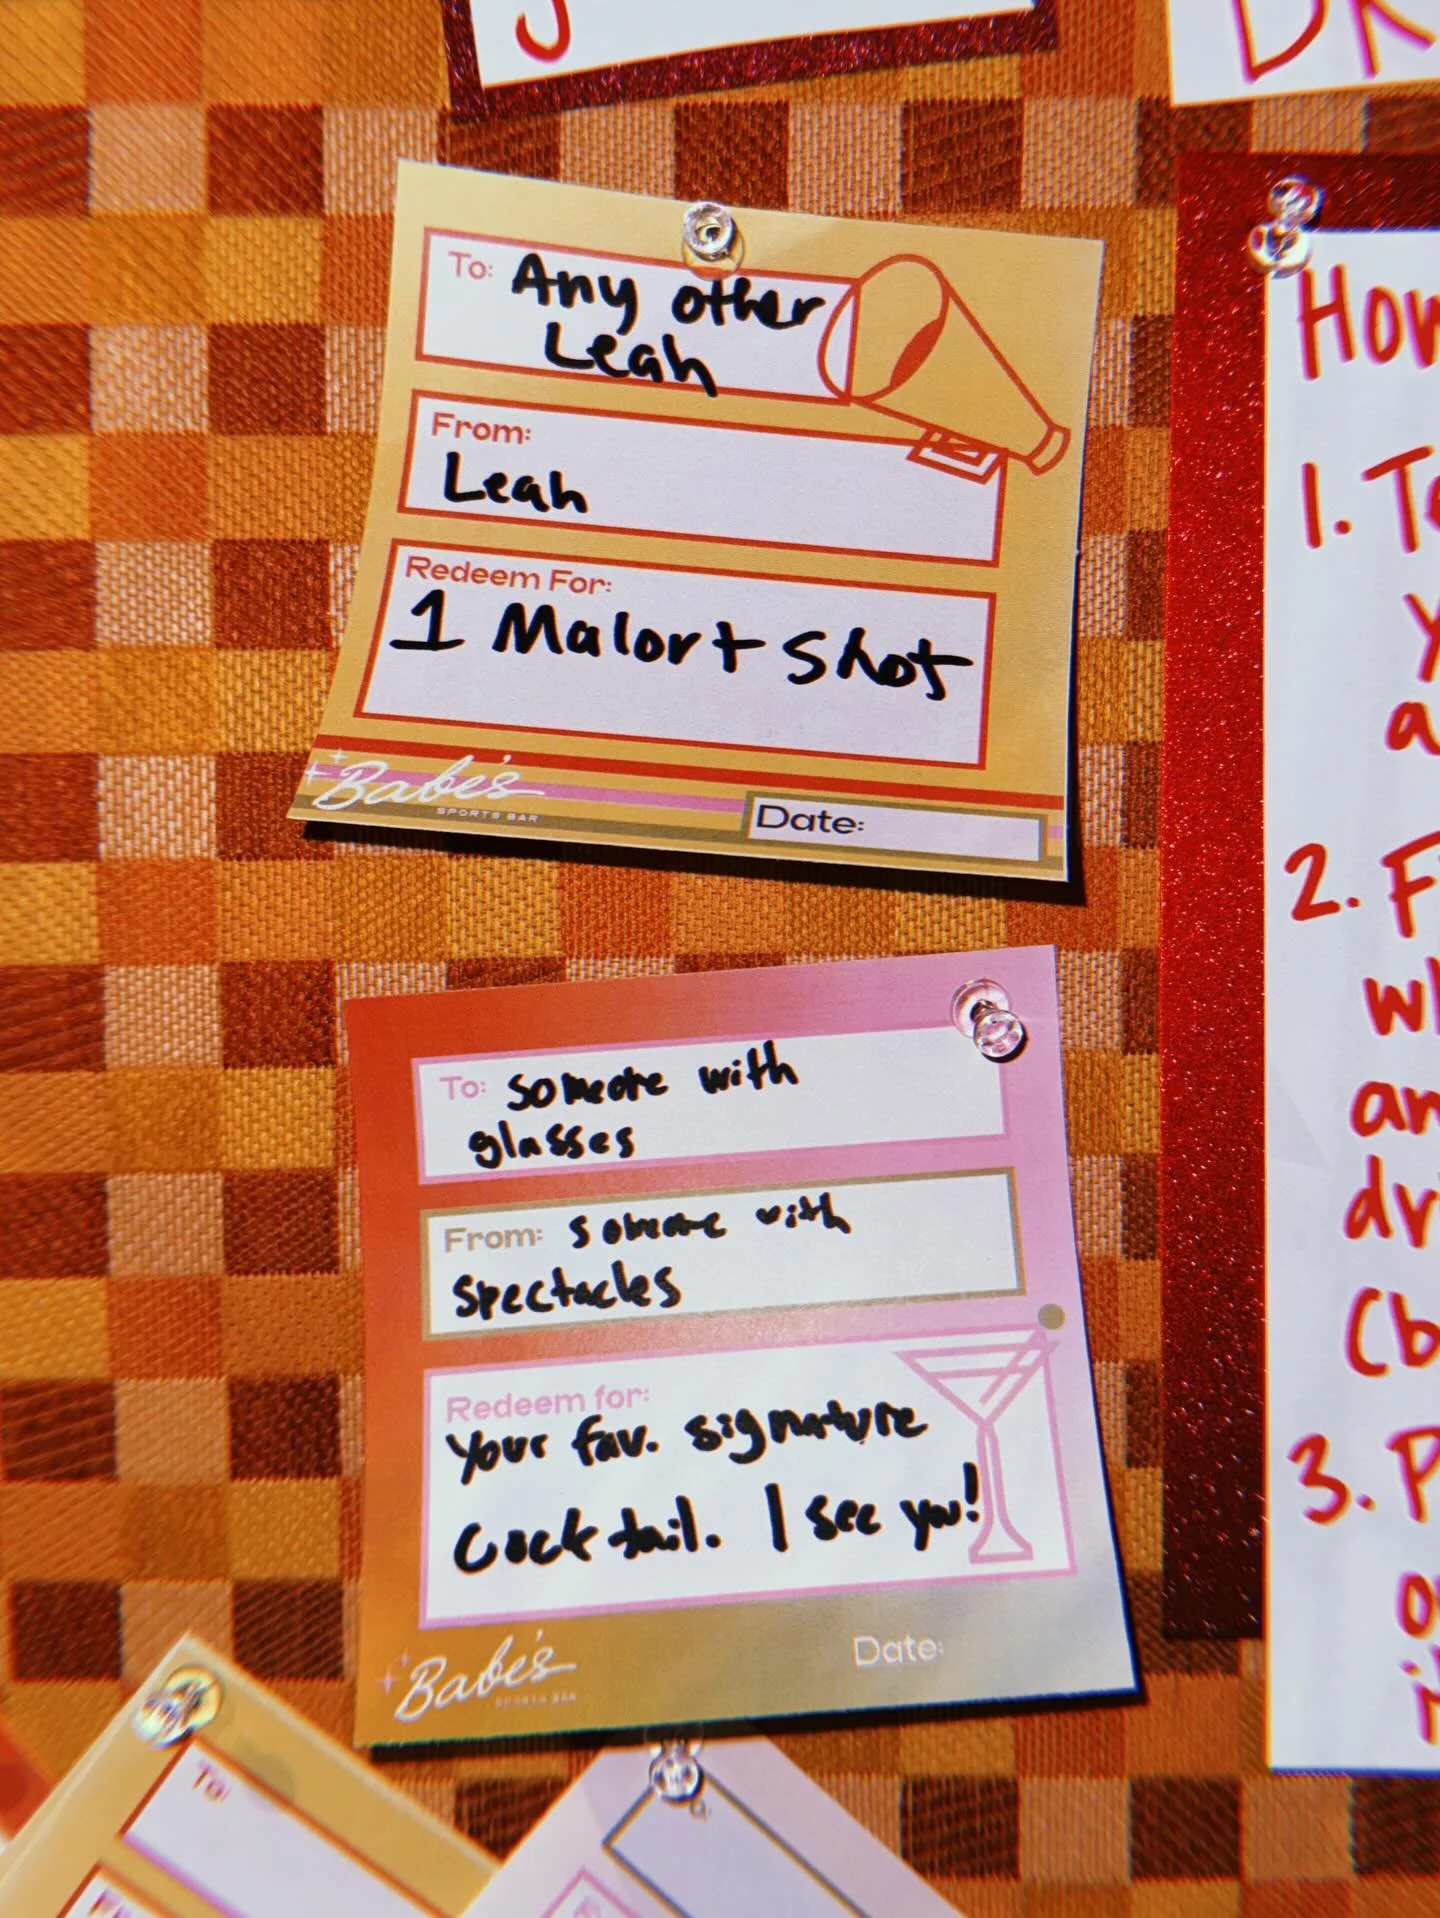 To: Any other
Leah
From:
Leah
Redeem For:
1 Malort Shot
Babe's
SPORTS BAR
Date:
To: someone with
glasses
From: someone with
spectacles
Redeem for:
your fav. signature
cocktail. I see you!
Babe's
SPORTS BAR
Date:
To:
How
1. To
y
a
2. F
wh
an
dri
(b
3. P
o
i